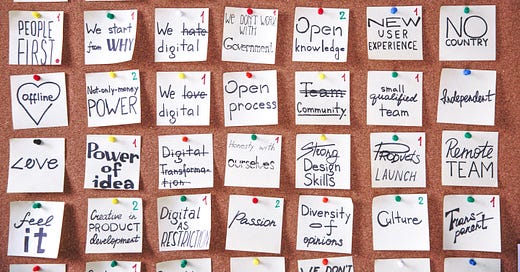 PEOPLE FIRST.
We start from WHY
1
We hate digital
1
We DON'T WORK with Government
2
Open knowledge
1
NEW USER EXPERIENCE
NO COUNTRY
offline
2
Not-only-money POWER
1
We love digital
1
Open process
Team Community
1
small qualified team
Independent
Love
1
Power of idea
1
Digital Transformation
1
Honesty with ourselves
Strong Design Skills
LAUNCH
1
Remote TEAM
2
feel it
2
Creative in PRODUCT development
2
Digital AS RESTRICTION
Passion
1
Diversity of opinions
2
Culture
1
Transparent
1
2
1
WE DON'T